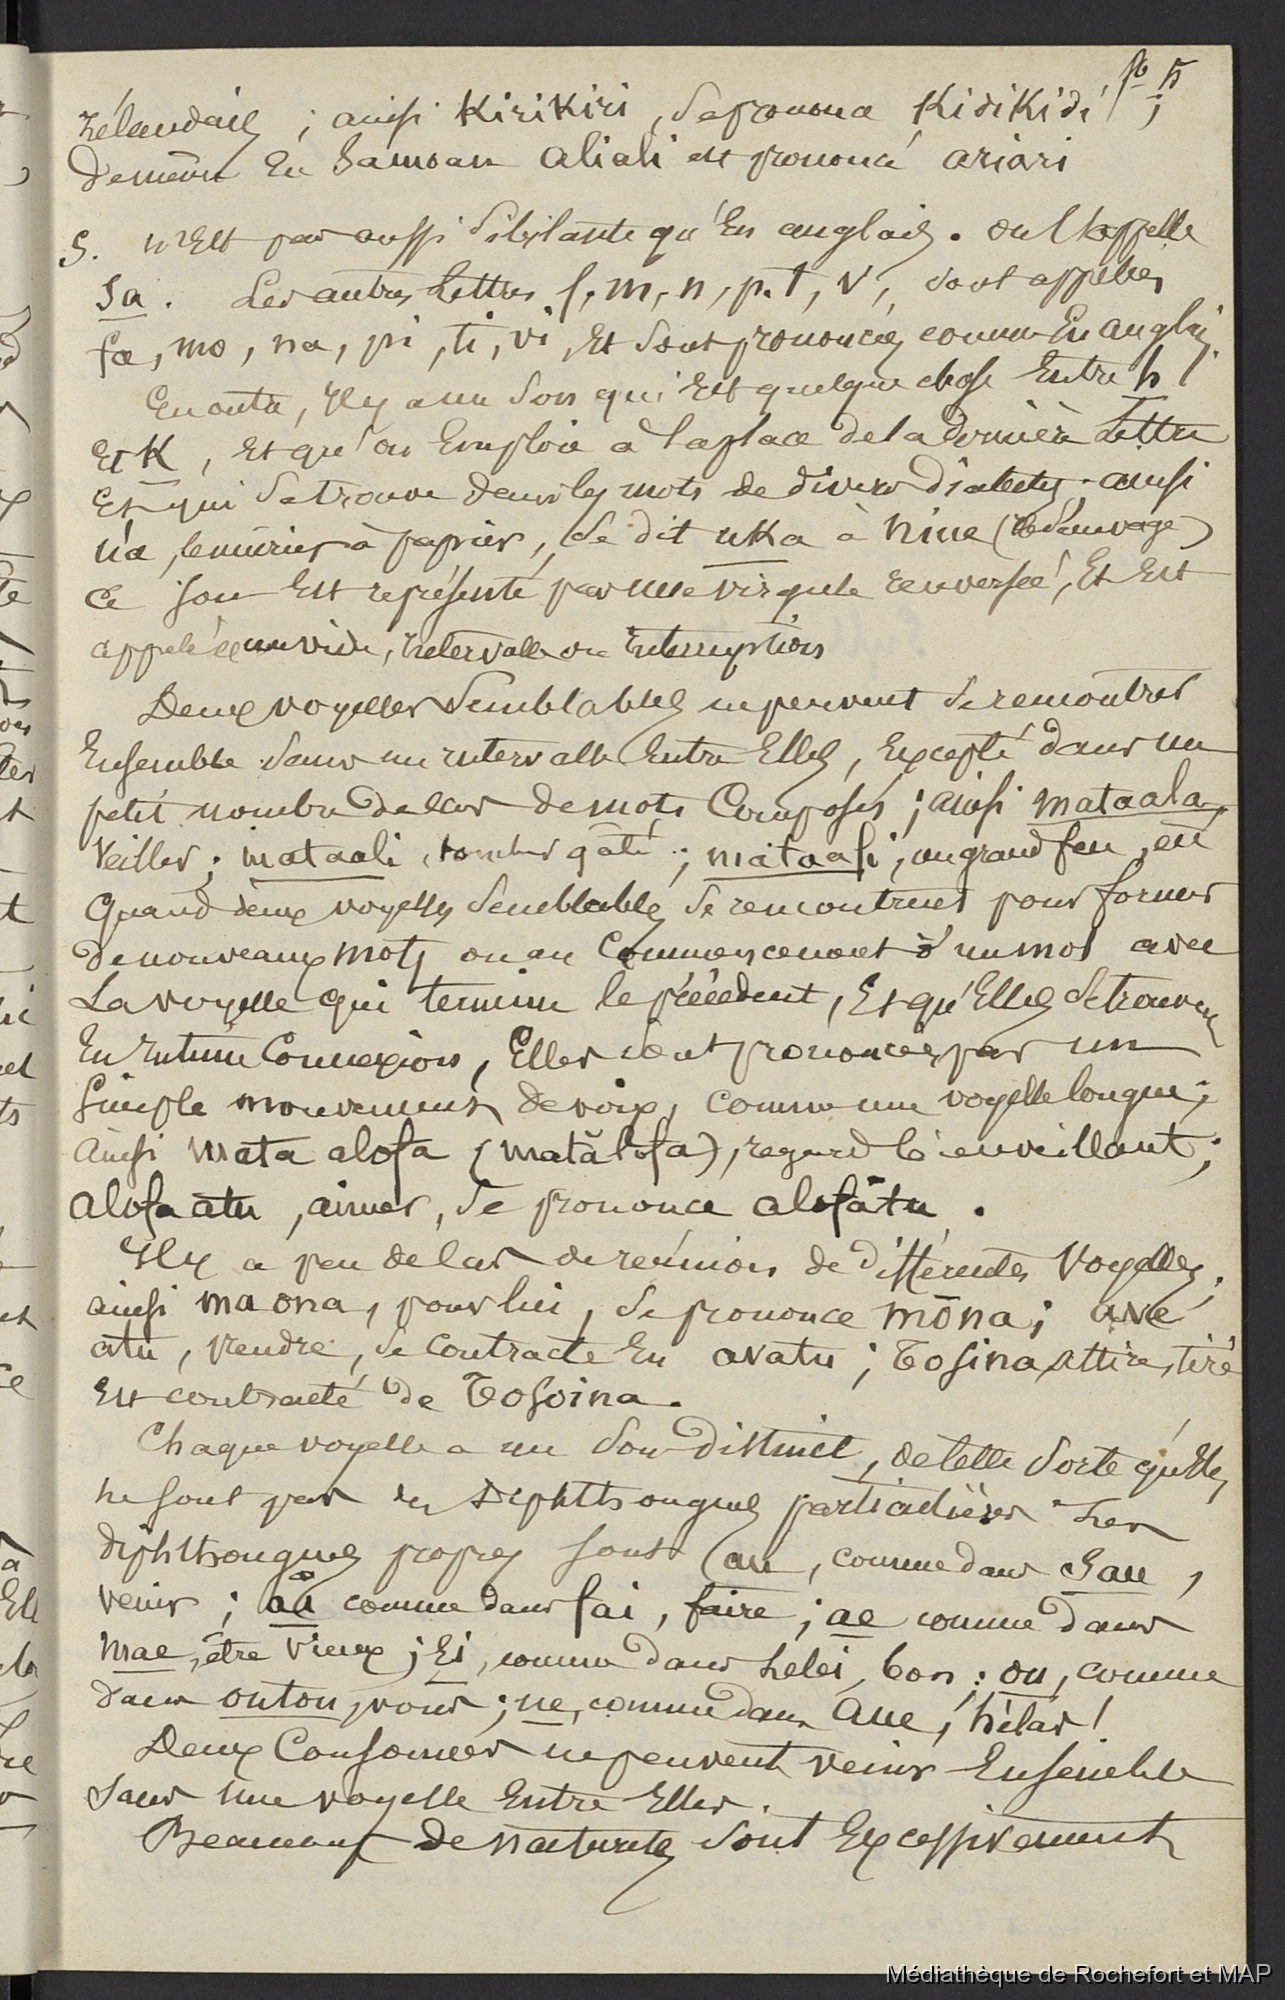 p. 5
zélandais ; ainsi Kirikiri, se prononce Kidikidi ;
De même En Samoan aliali est prononcé ariari
S. n'Est pas aussi sibilante qu'En anglais. on l'appelle
Sa. Les autres lettres f, m, n, p, t, v, sont appelées
fa, mo, na, pi, ti, vi, Et sont prononcées comme En anglais
En outre, Il y a un son qui Est quelque chose Entre h
Et K, Et qu'on Emploie à la place de la dernière Lettre
Et qui se trouve dans les mots de divers dialectes ; ainsi
u'a, le mûrier à papier, se dit uKa à Nine (le sauvage)
Ce son Est représenté par une virgule renversée, Et Est
appelé un vide, Intervalle ou Interruption
Deux voyelles semblables ne peuvent se rencontrer
Ensemble sans un intervalle Entre Elles, Excepté dans un
petit nombre de cas de mots Composés ; ainsi mataala,
Veiller ; mataali, tomber gâté ; mataafi, un grand feu, ou
Quand deux voyelles semblables se rencontrent pour former
de nouveaux mots ou au Commencement d'un mot avec
La voyelle qui termine le précédent, Et qu'Elles se trouvent
En Intime Connexion, Elles sont prononcées par un
Simple mouvement de voix, comme une voyelle longue ;
Ainsi Mata alofa (matălofa), regard bienveillant ;
alofa atu, aimer, se prononce alofātu.
Il y a peu de cas de réunion de différentes Voyelles ;
ainsi ma ona, pour lui, se prononce mōna ; ave
atu, rendre, se contracte En avatu ; Tosina, attiré, tiré
Est contracté de Tosoina.
Chaque voyelle a un son distinct, de telle sorte qu'Elles
ne sont pas des Diphthongues particulières. Les
diphthongues propres sont au, comme dans Sau,
venir ; ai comme dans fai, faire ; ae comme dans
Mae, être vieux ; Ei, comme dans lelei, bon ; ou, comme
dans outou, vous ; ue, comme dans Aue, hélas !
Deux Consonnes ne peuvent venir Ensemble
sans une voyelle Entre Elles.
Beaucoup de naturels sont Excessivement
Médiathèque de Rochefort et MAP